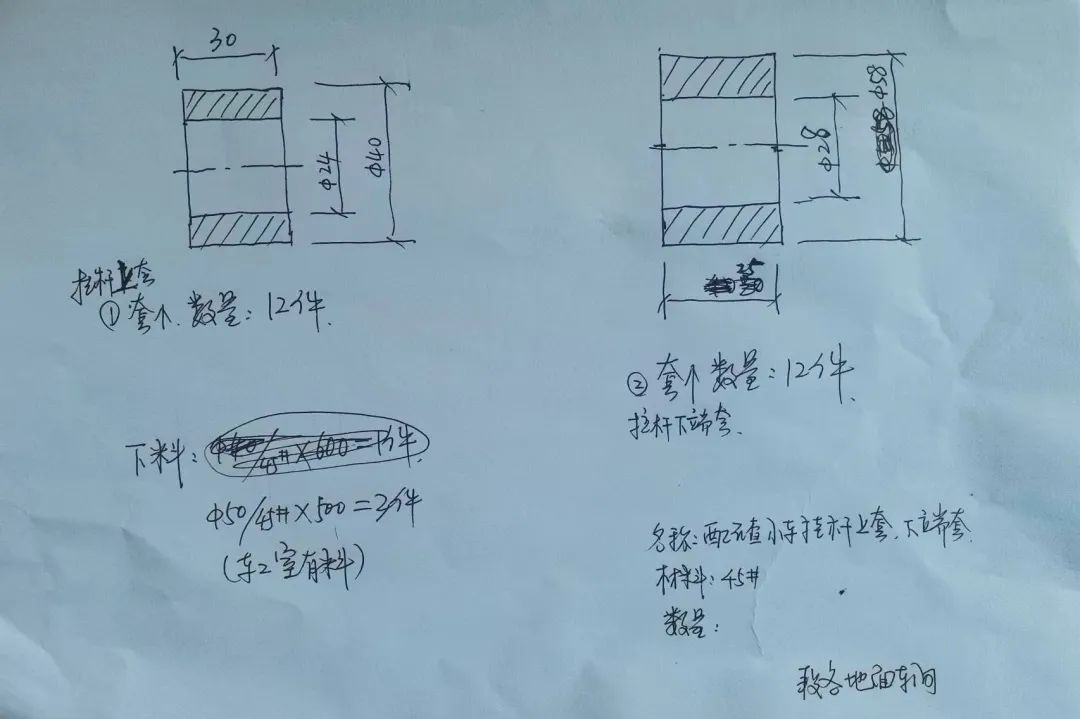 30
Φ24
Φ40
拉杆上套
① 套个.数量：12件.
下料：
Φ50/45#×500=3件
(车工室有料)
Φ28
Φ58
25
② 套个 数量：12件.
拉杆下端套.
名称：配渣小车拉杆上套、下端套.
材料：45#
数量：
地面车间